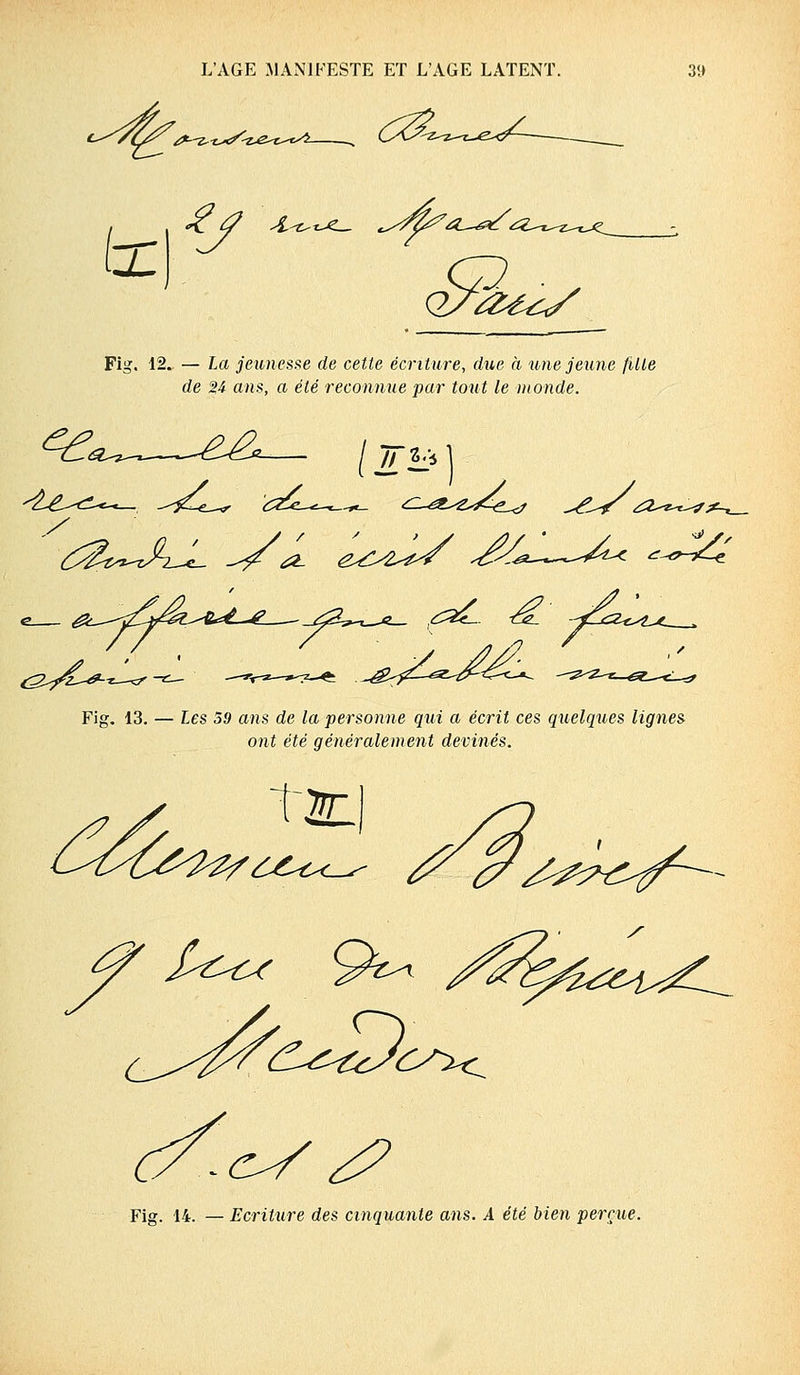 L'AGE MANIFESTE ET L'AGE LATENT. 39
Monsieur Binet
[I] 29 rue Madame
Paris
Fig. 12. — La jeunesse de cette écriture, due à une jeune fille
de 24 ans, a été reconnue par tout le monde.
[II
reçu les deux cartes et
André t'a écrit côté
affaire que de le faire
choisi établi mais
Fig. 13. — Les 39 ans de la personne qui a écrit ces quelques lignes
ont été généralement devinés.
[III]
Monsieur Binet
9 rue Du Départ
Meudon
S. et O
Fig. 14. — Ecriture des cinquante ans. A été bien perçue.